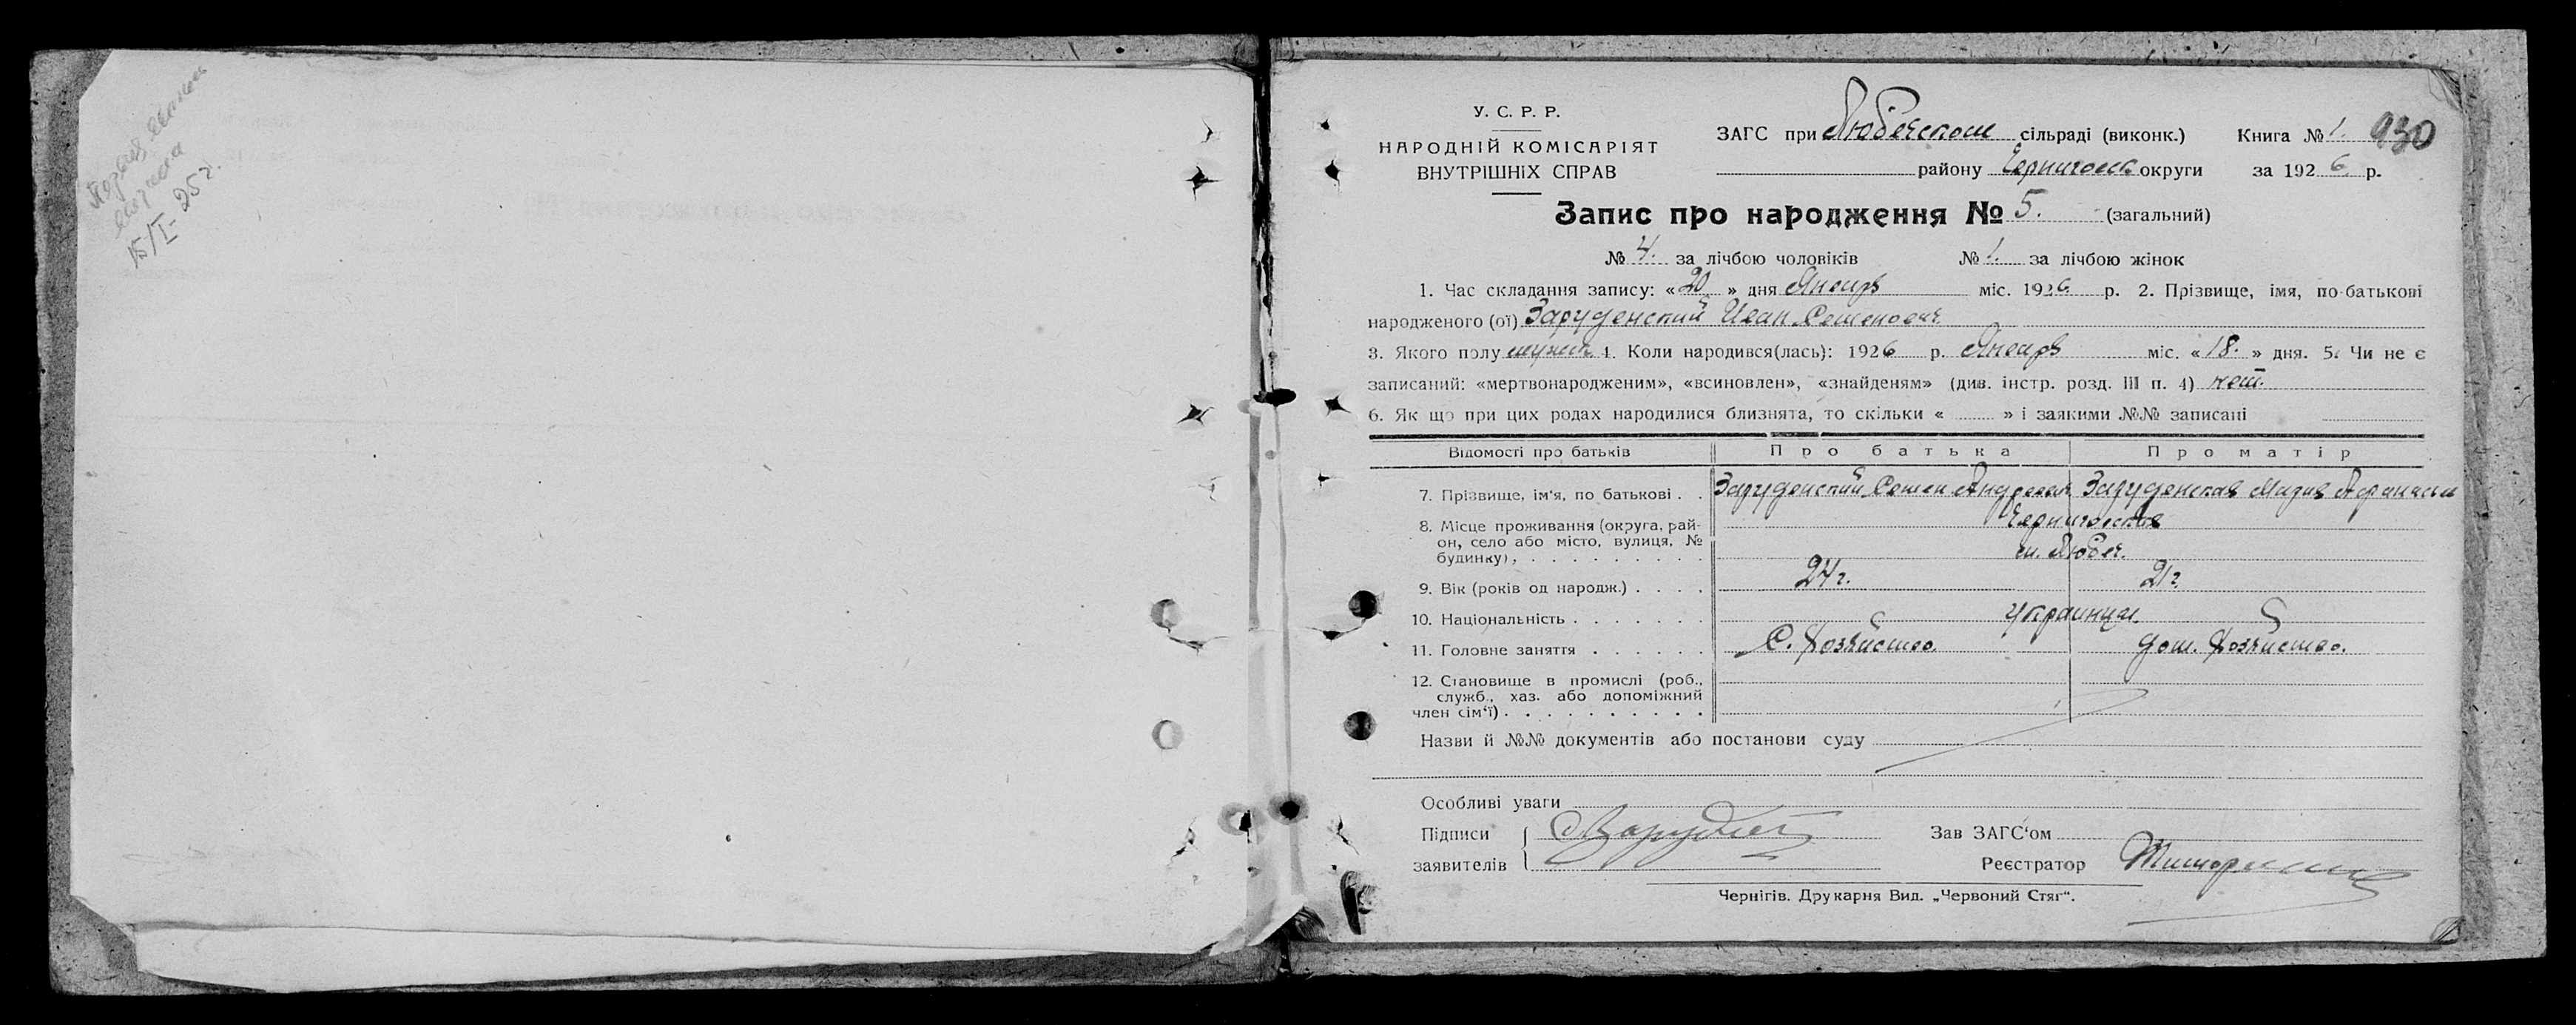 15/I 25 г.
У. С. Р. Р.
НАРОДНІЙ КОМІСАРІЯТ
ВНУТРІШНІХ СПРАВ
ЗАГС при Любечском сільраді (виконк.) Книга № 1. 930
району Черниговск округи за 1926 р.
Запис про народження № 5. (загальний)
№ 4. за лічбою чоловіків № 1. за лічбою жінок
1. Час складання запису: «20» дня Январь міс. 1926 р. 2. Прізвище, імя, по-батькові
народженого (ої) Заруденский Иван Семенович
3. Якого полу мужск 4. Коли народився(лась): 1926 р. Январь міс. «18.» дня. 5. Чи не є
записаний: «мертвонародженим», «всиновлен», «знайденям» (див. інстр. розд. III п. 4) нет.
6. Як що при цих родах народилися близнята, то скільки « » і заякими №№ записані
Відомості про батьків Про батька Про матір
7. Прізвище, ім'я, по батькові . . Заруденский Семен Андреевич Заруденская Мария Афанасьи
8. Місце проживання (округа, рай- Черниговская
он, село або місто, вулиця, №
будинку), м. Любеч.
9. Вік (років од народж.) 24 г. 21 г.
10. Національність Украинцы.
11. Головне заняття С. Хозяйство. дом. Хозяйство.
12. Становище в промислі (роб.,
служб., хаз. або допоміжний
член сім'ї)
Назви й №№ документів або постанови суду
Особливі уваги
Підписи
заявителів
Зав ЗАГС'ом
Реєстратор
Чернігів. Друкарня Вид. „Червоний Стяг“.